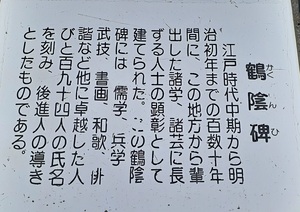 鶴陰碑
かくいんひ
江戸時代中期から明
治初年までの百数十年
間に、この地方から輩
出した諸学、諸芸に長
ずる人士の顕彰として
建てられた。この鶴陰
碑には 儒学、兵学
武技、書画、和歌、俳
諧など他に卓越した人
びと百九十四人の氏名
を刻み、後進人の導き
としたものである。